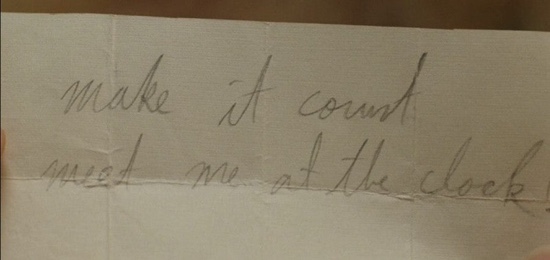 make it count
meet me at the clock!